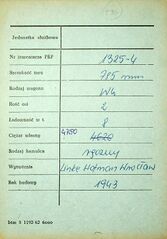 Jednostka służbowa
Nr inwentarza PKP 1325-4
Szerokość toru 785 mm
Rodzaj wagonu Wk
Ilość osi 2
Ładowność w t. 8
Ciężar własny 4780 4620
Rodzaj hamulca ręczny
Wytwórnia Linke Hofman Wrocław
Rok budowy 1943